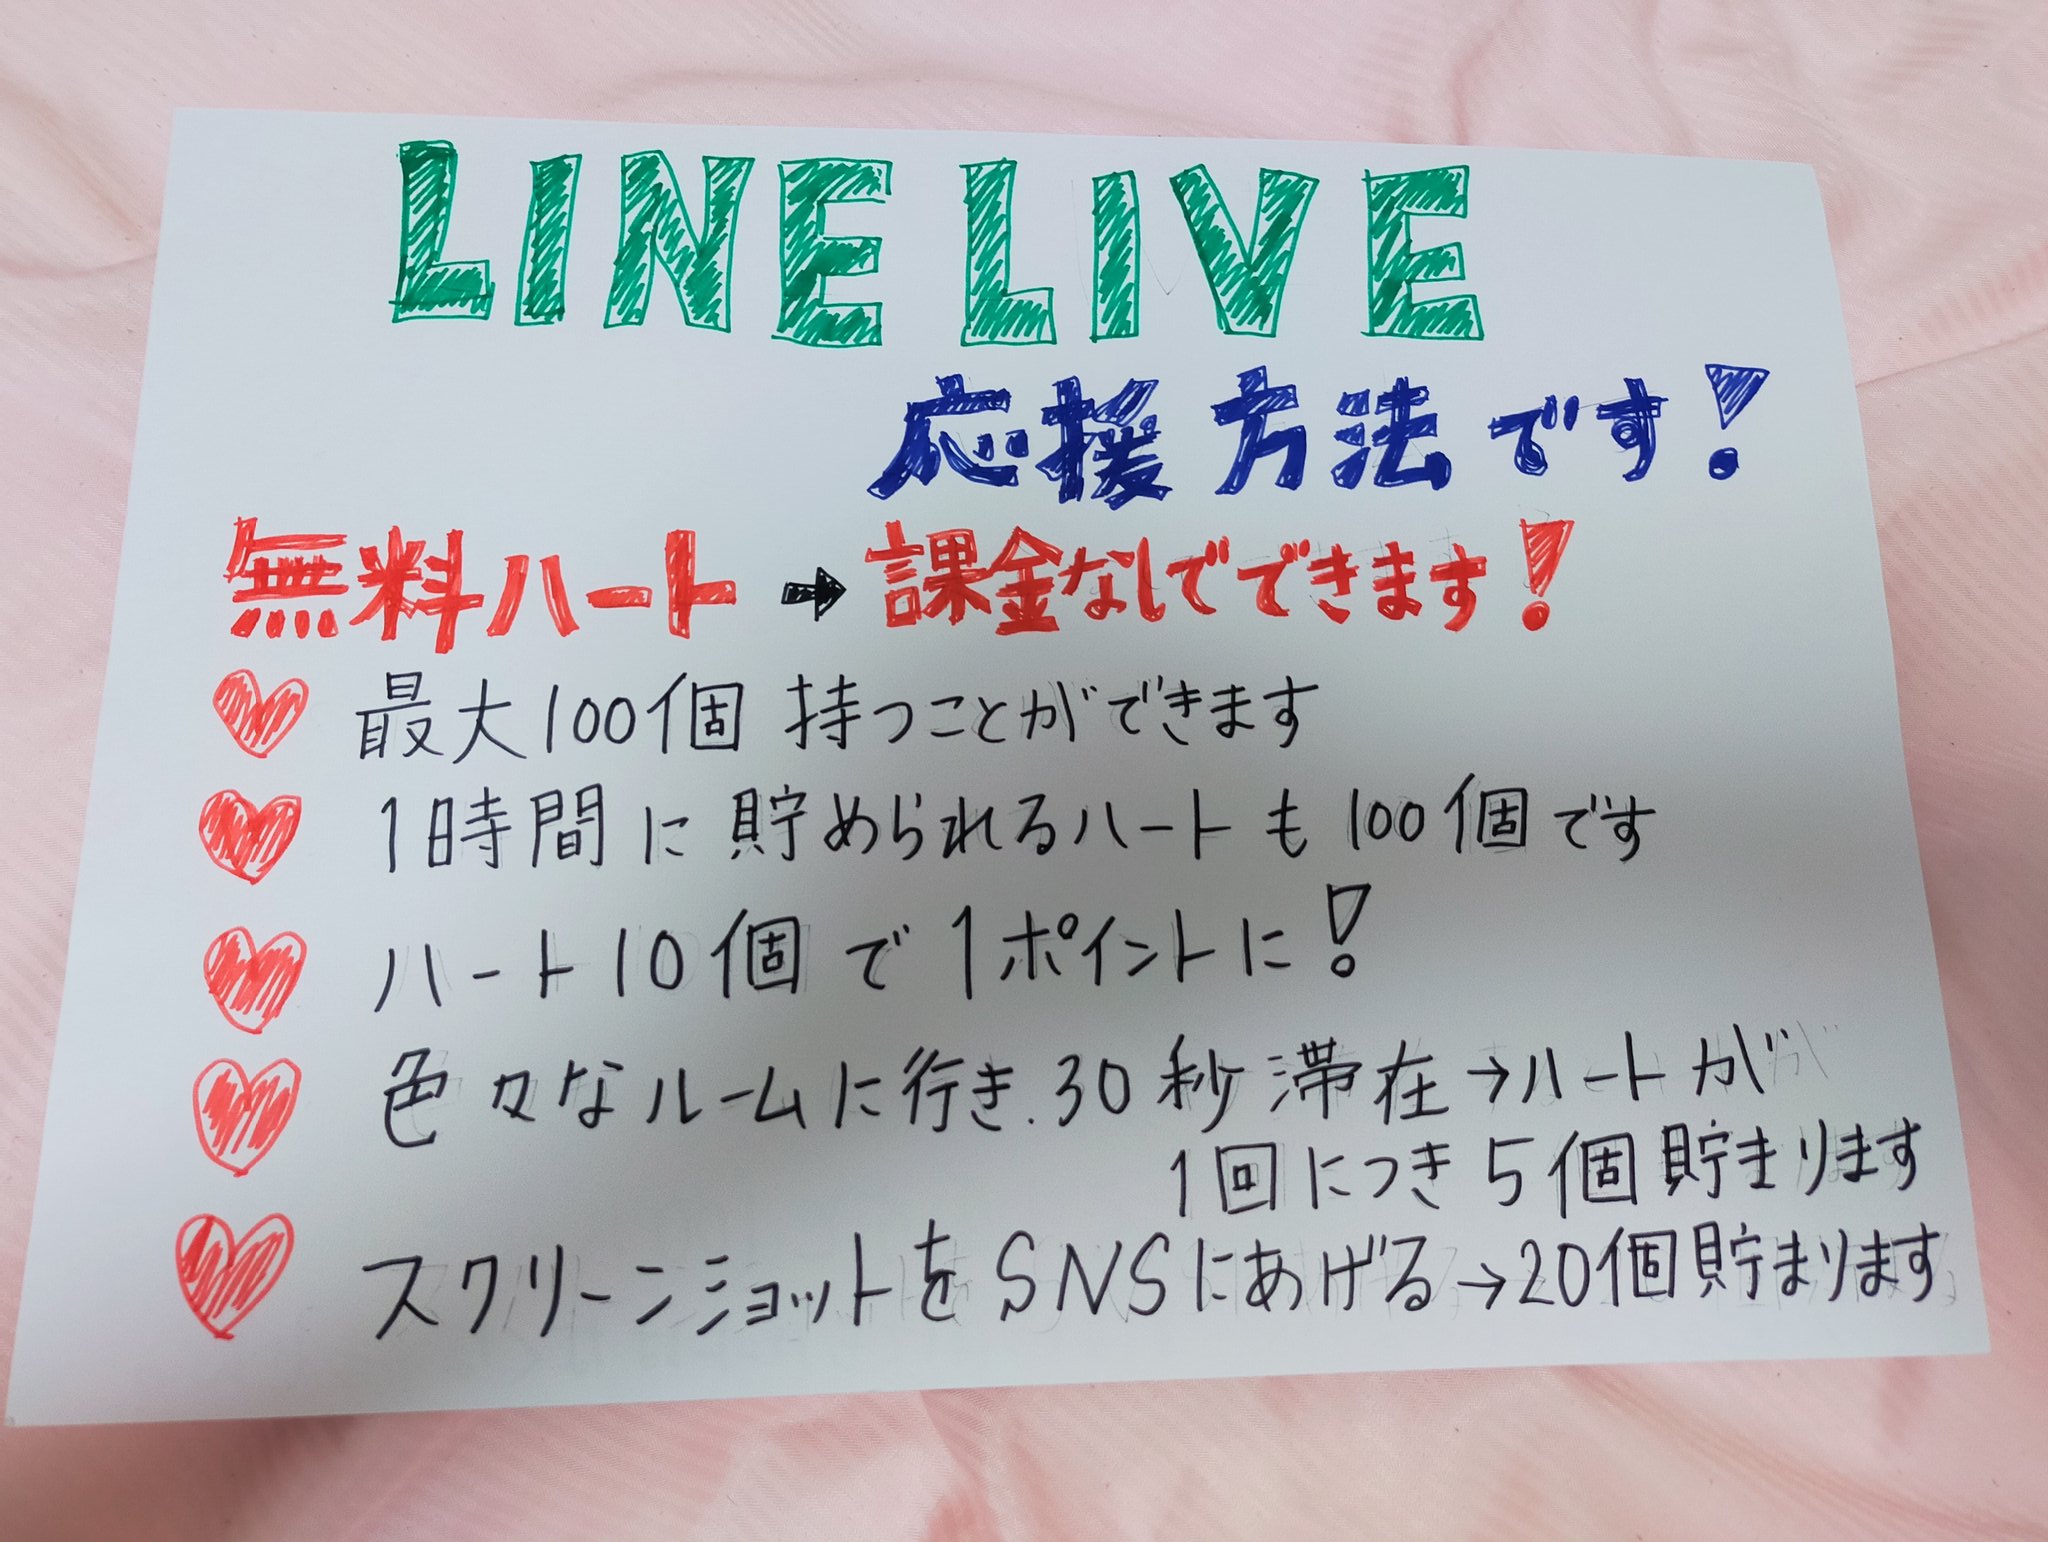 LINE LIVE
応援方法です!
無料ハート➡課金なしでできます!
最大100個 持つことができます
1時間に貯められるハートも100個です
ハート10個で1ポイントに!
色々なルームに行き.30秒滞在→ハートが
1回につき5個貯まります
スクリーンショットをSNSにあげる→20個貯まります